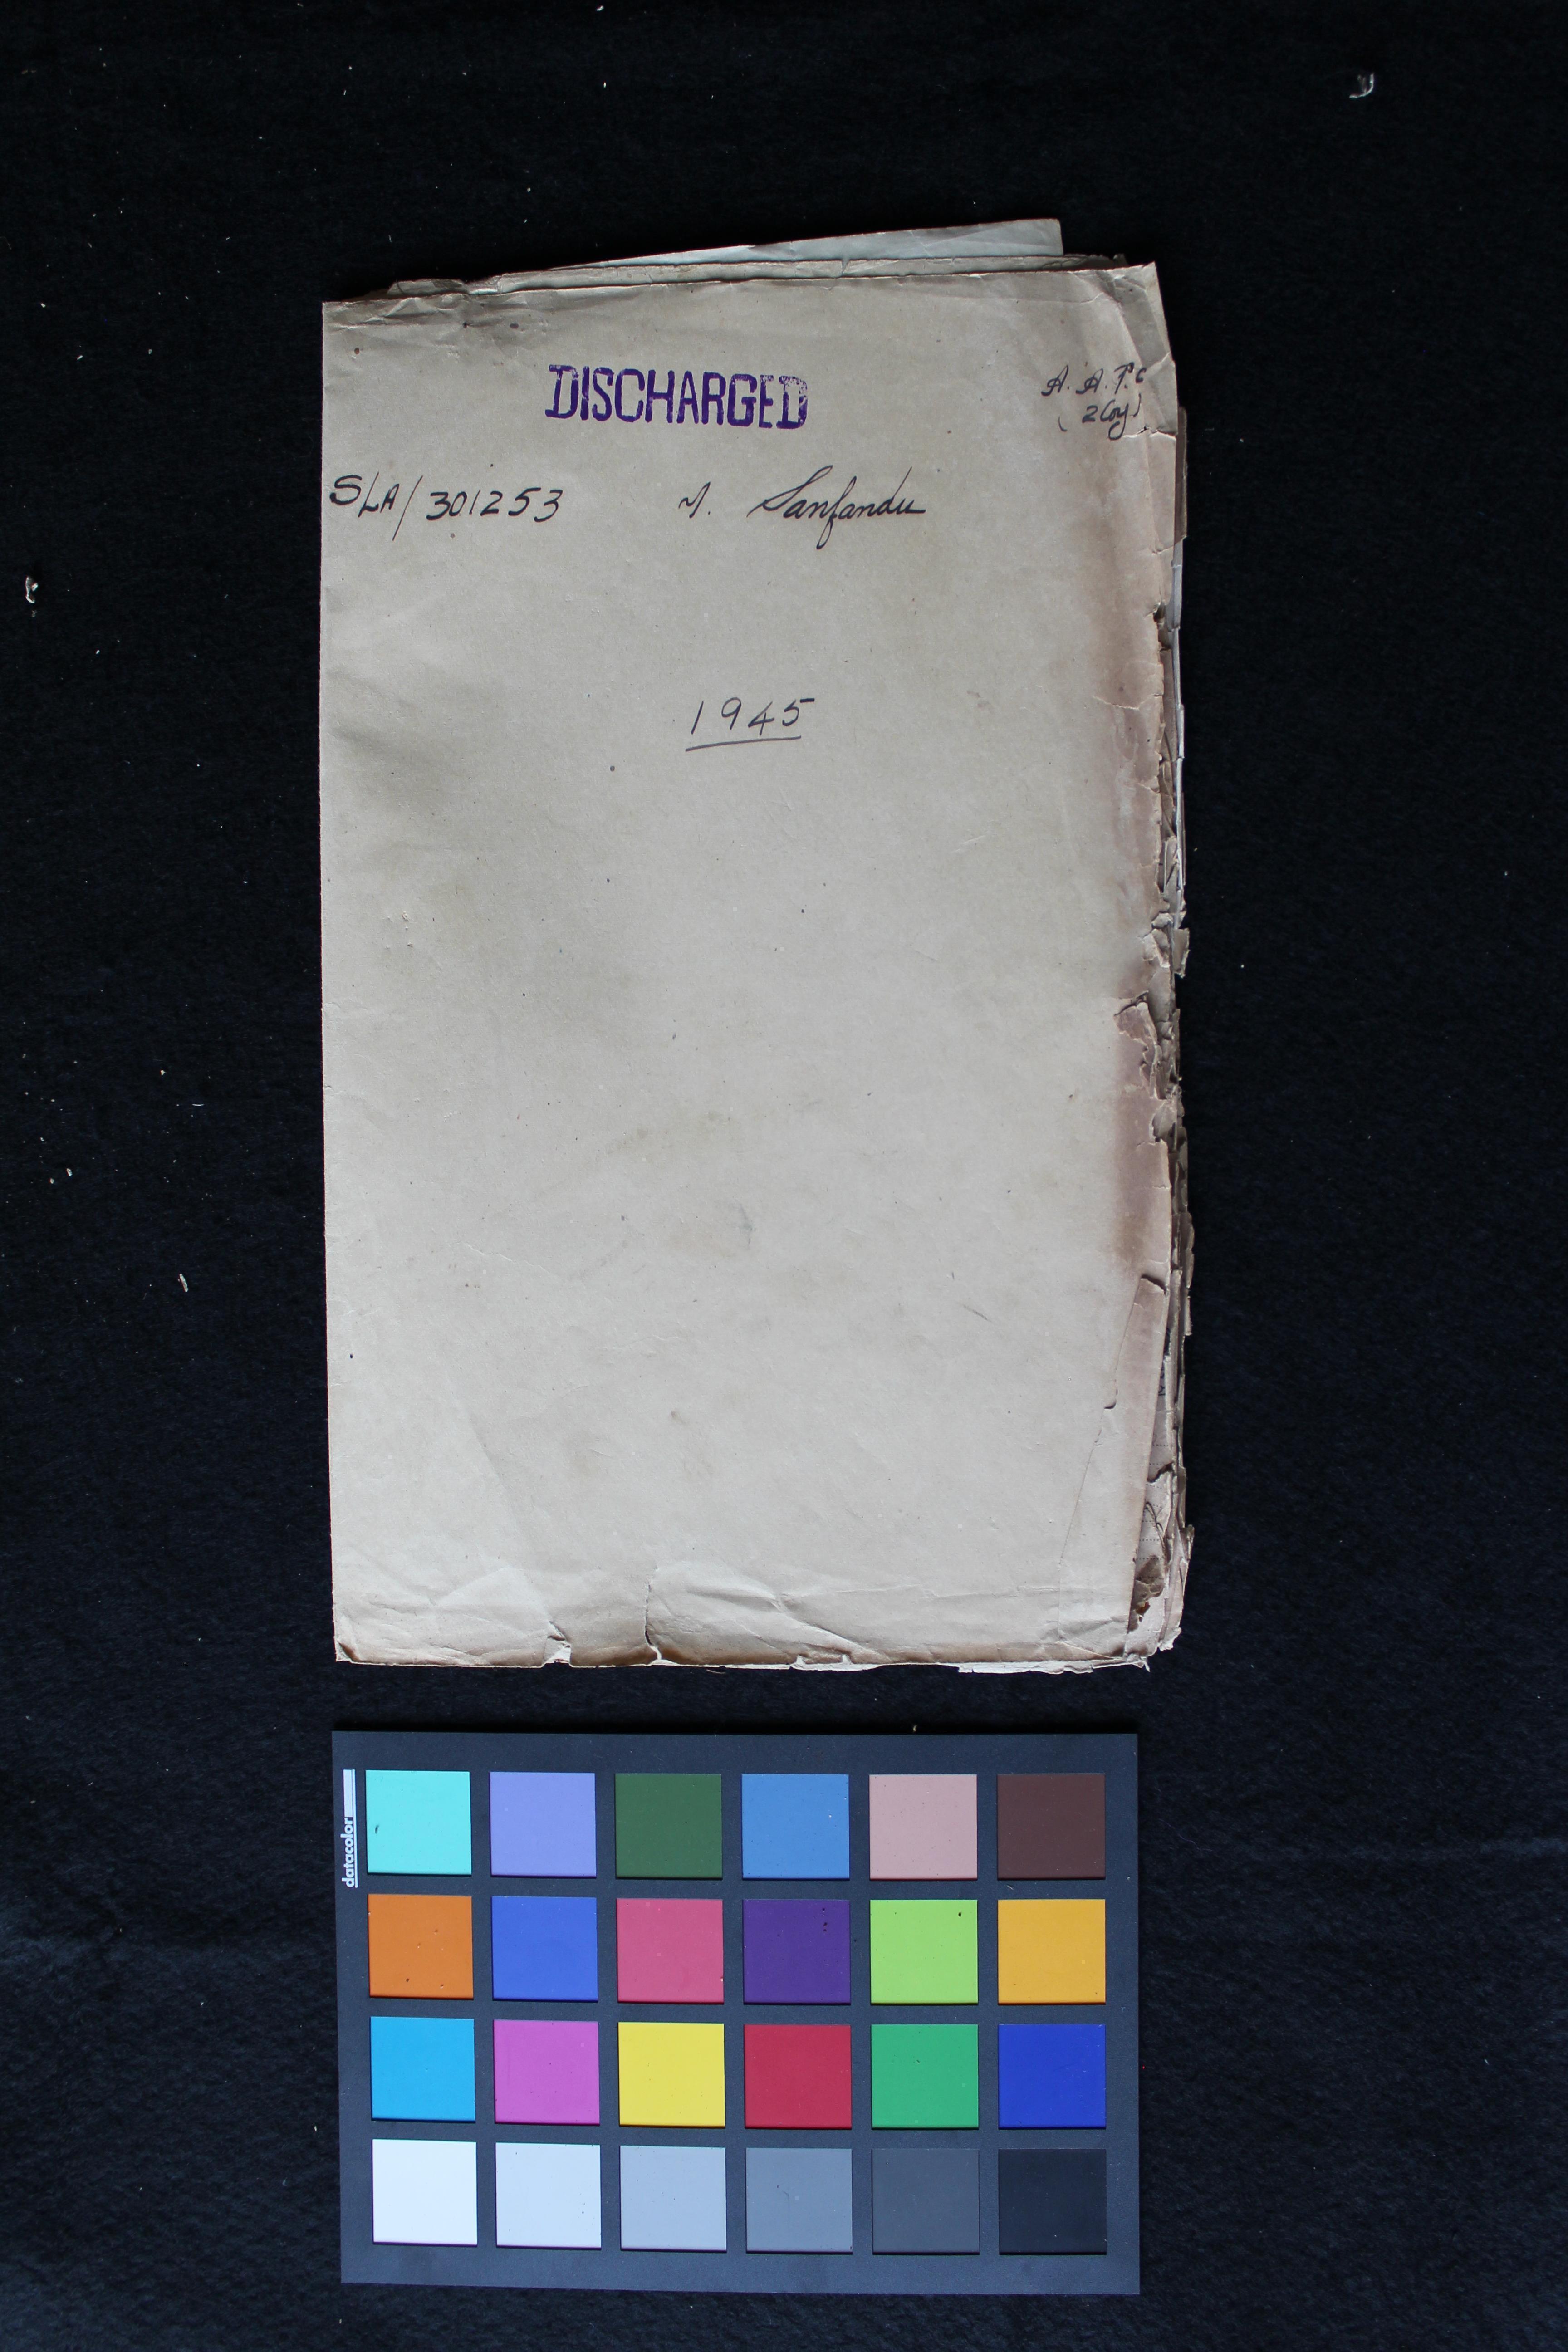 DISCHARGED
A. A. P. C
(2 Coy)
SLA/301253 Y. Sanfandu
1945
datacolor